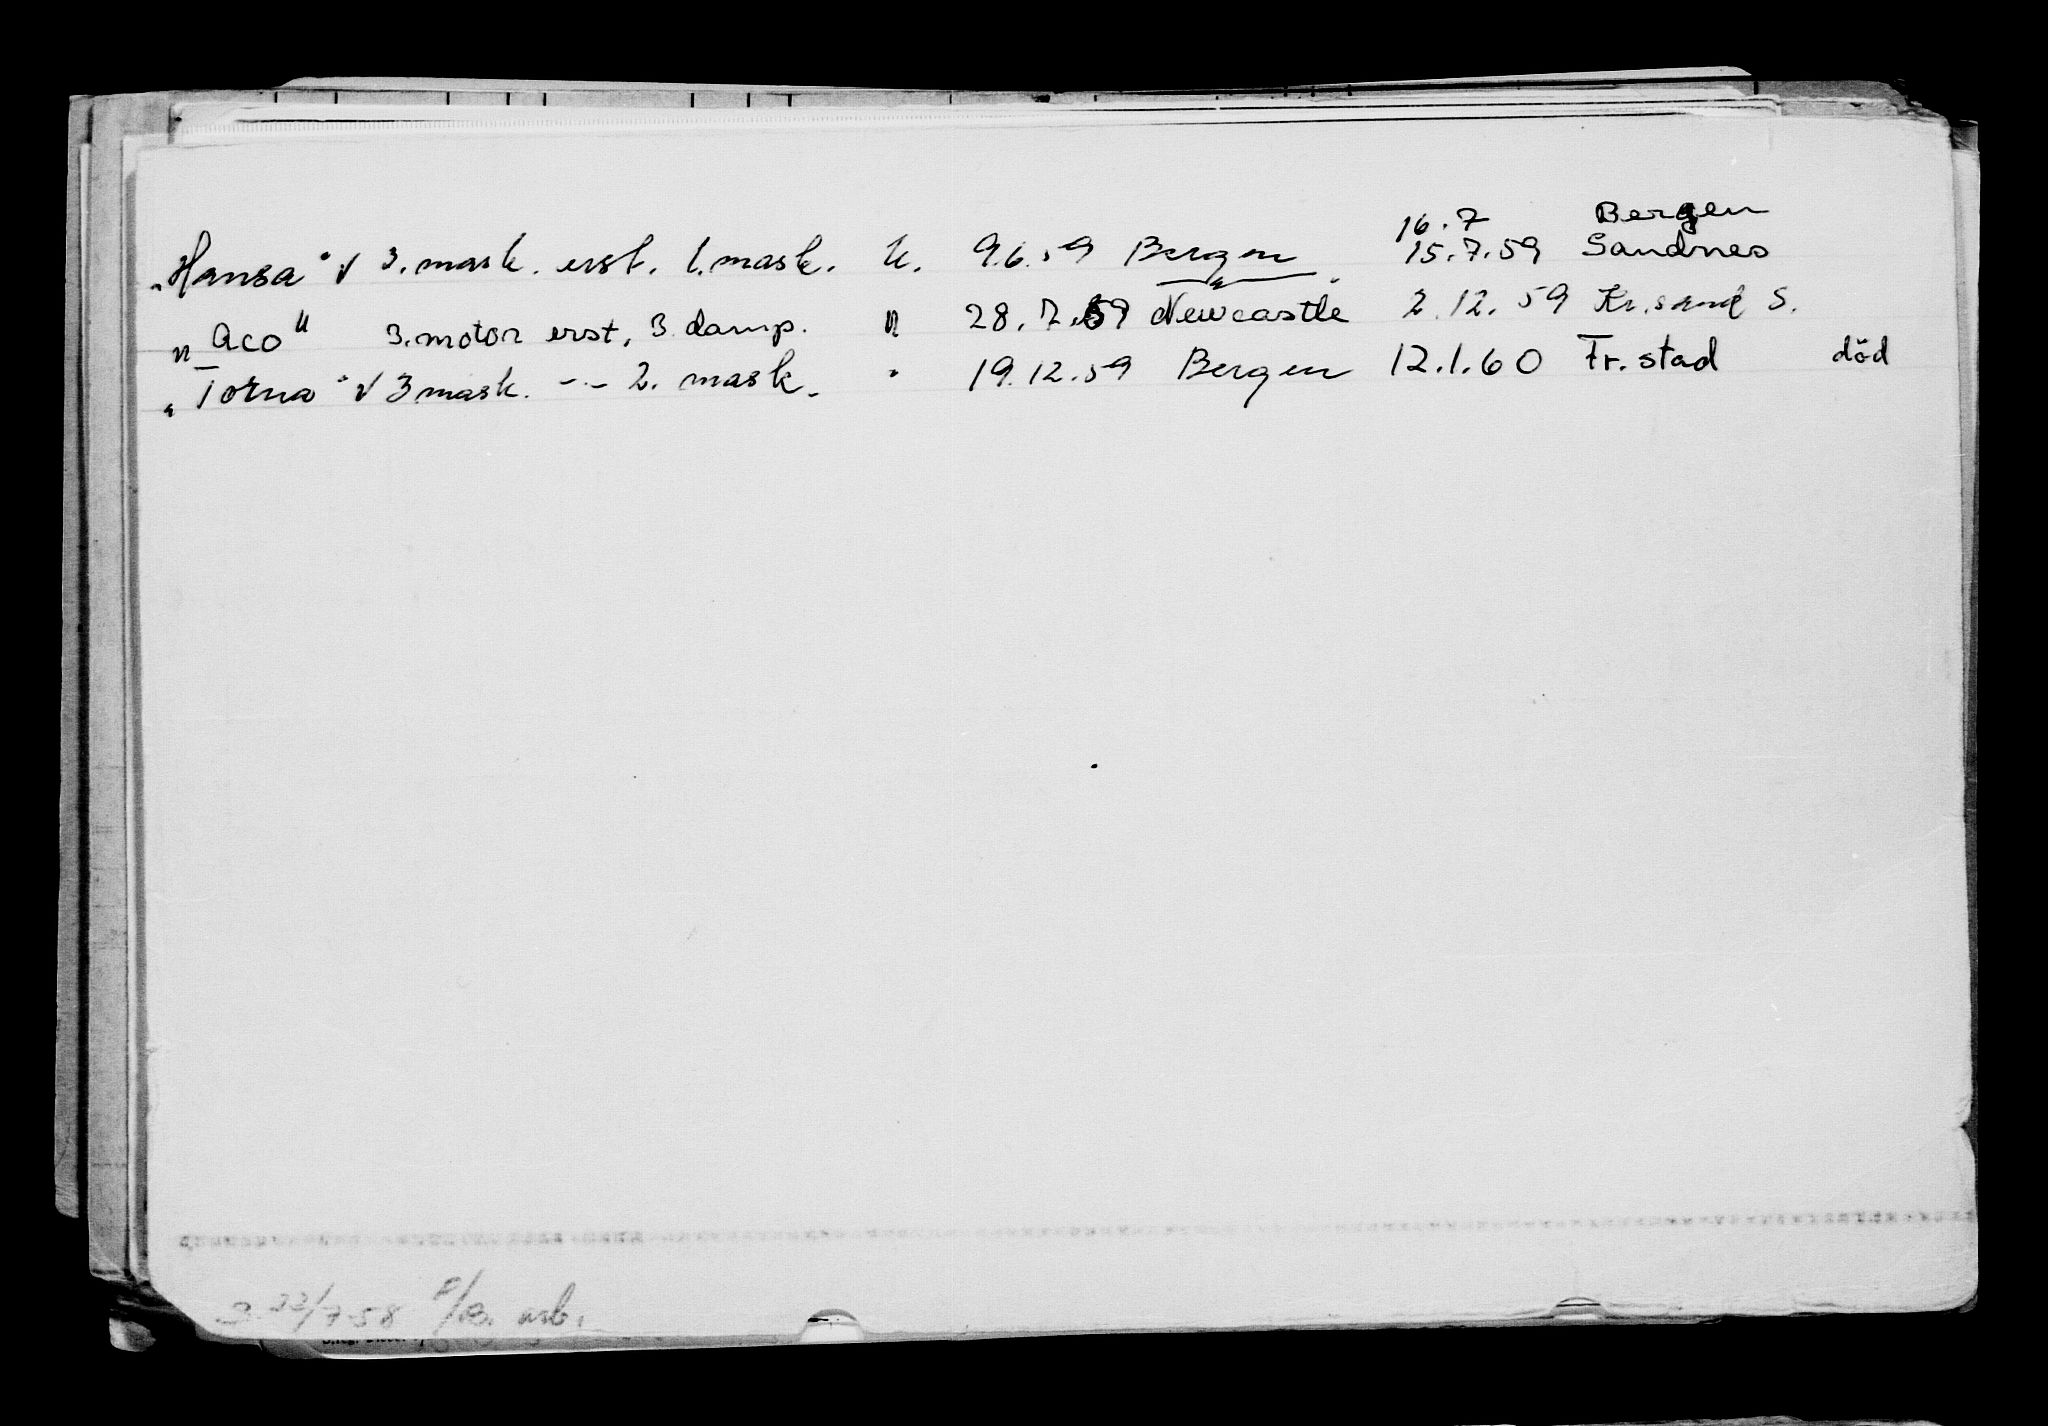 16.7 Bergen
„Hansa" √ 3. mask. erst. 1. mask. U. 9.6.59 Bergen 15.7.59 Sandnes
„Aco" 3. motor erst, 3. damp. " 28.7.59 Newcastle 2.12.59 Kr.sand S.
„Torna" √ 3 mask. -"- 2. mask. " 19.12.59 Bergen 12.1.60 Fr.stad död